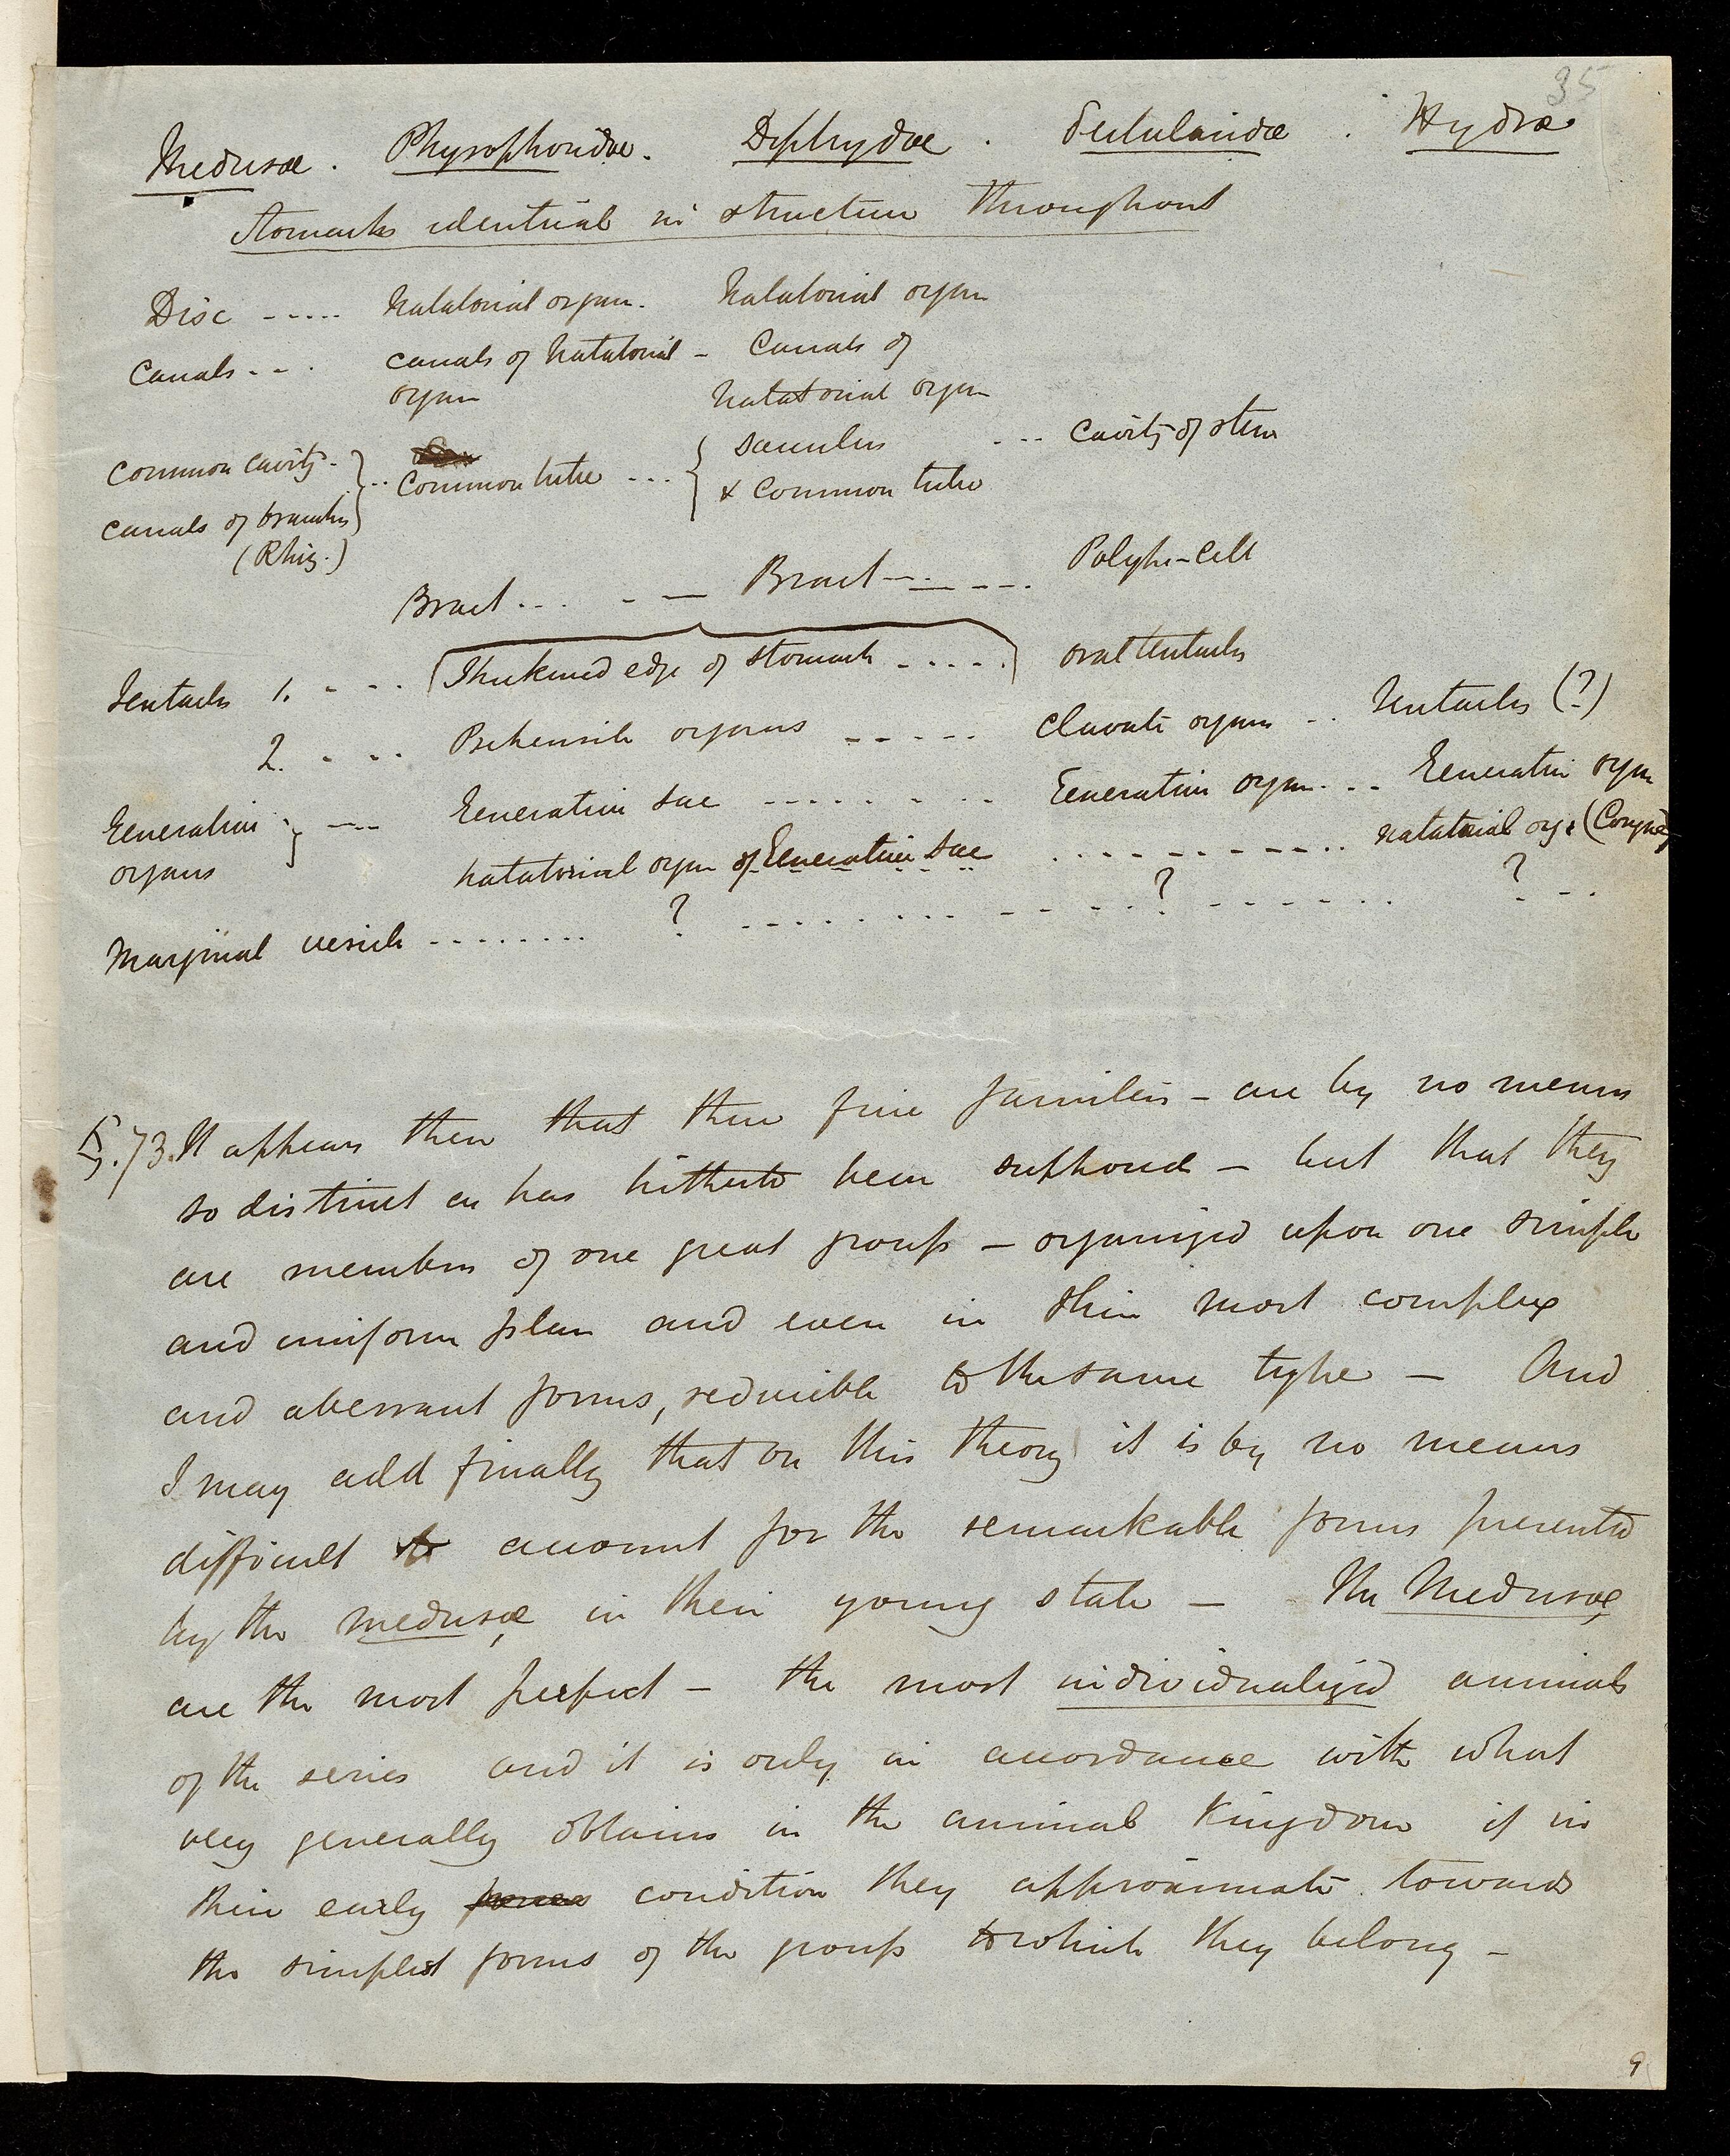 35
Medusæ . Physophoridae . Diphydae . Sertularidæ . Hydræ
Stomachs identical in structure throughout
Disc ----- Natatorial organ . Natatorial organ
Canals --- . canals of Natatorial - Canals of
organ Natatorial organ
Common cavity - } .. Common tube --- { Sacculus --- Cavity of stem
canals of branches & common tube
(Rhiz.)
Bract ... - - — Bract ------ Polype-cell
Tentacles 1. - - - . Thickened edge of stomach ----- oral tentacles
2. - - - . Prehensile organs ----- Clavate organs -- Tentacles (?)
Generative } ---- Generative sac -------- Generative organ . -- Generative organ
organs Natatorial organ of Generative sac .......... natatorial org: (Coryne)
Marginal vesicle -------- ? ---------- ? ------- ? ---
§.73. It appears then that these five families - are by no means
so distinct as has hitherto been supposed - but that they
are members of one great group - organized upon one simple
and uniform plan and even in their most complex
and aberrant forms, reducible to the same type - And
I may add finally that on this theory it is by no means
difficult to account for the remarkable forms presented
by the medusæ in their young state - The Medusæ
are the most perfect - the most individualized animals
of the series and it is only in accordance with what
very generally obtains in the animal Kingdom if in
their early forms condition they approximate towards
the simplest forms of the group to which they belong -
9